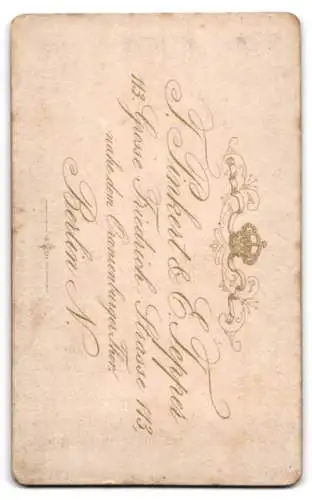 F. Pinkert & E. Tepper
113. Grosse Friedrich-Strasse 113,
nahe dem Oranienburger Thor.
Berlin N.